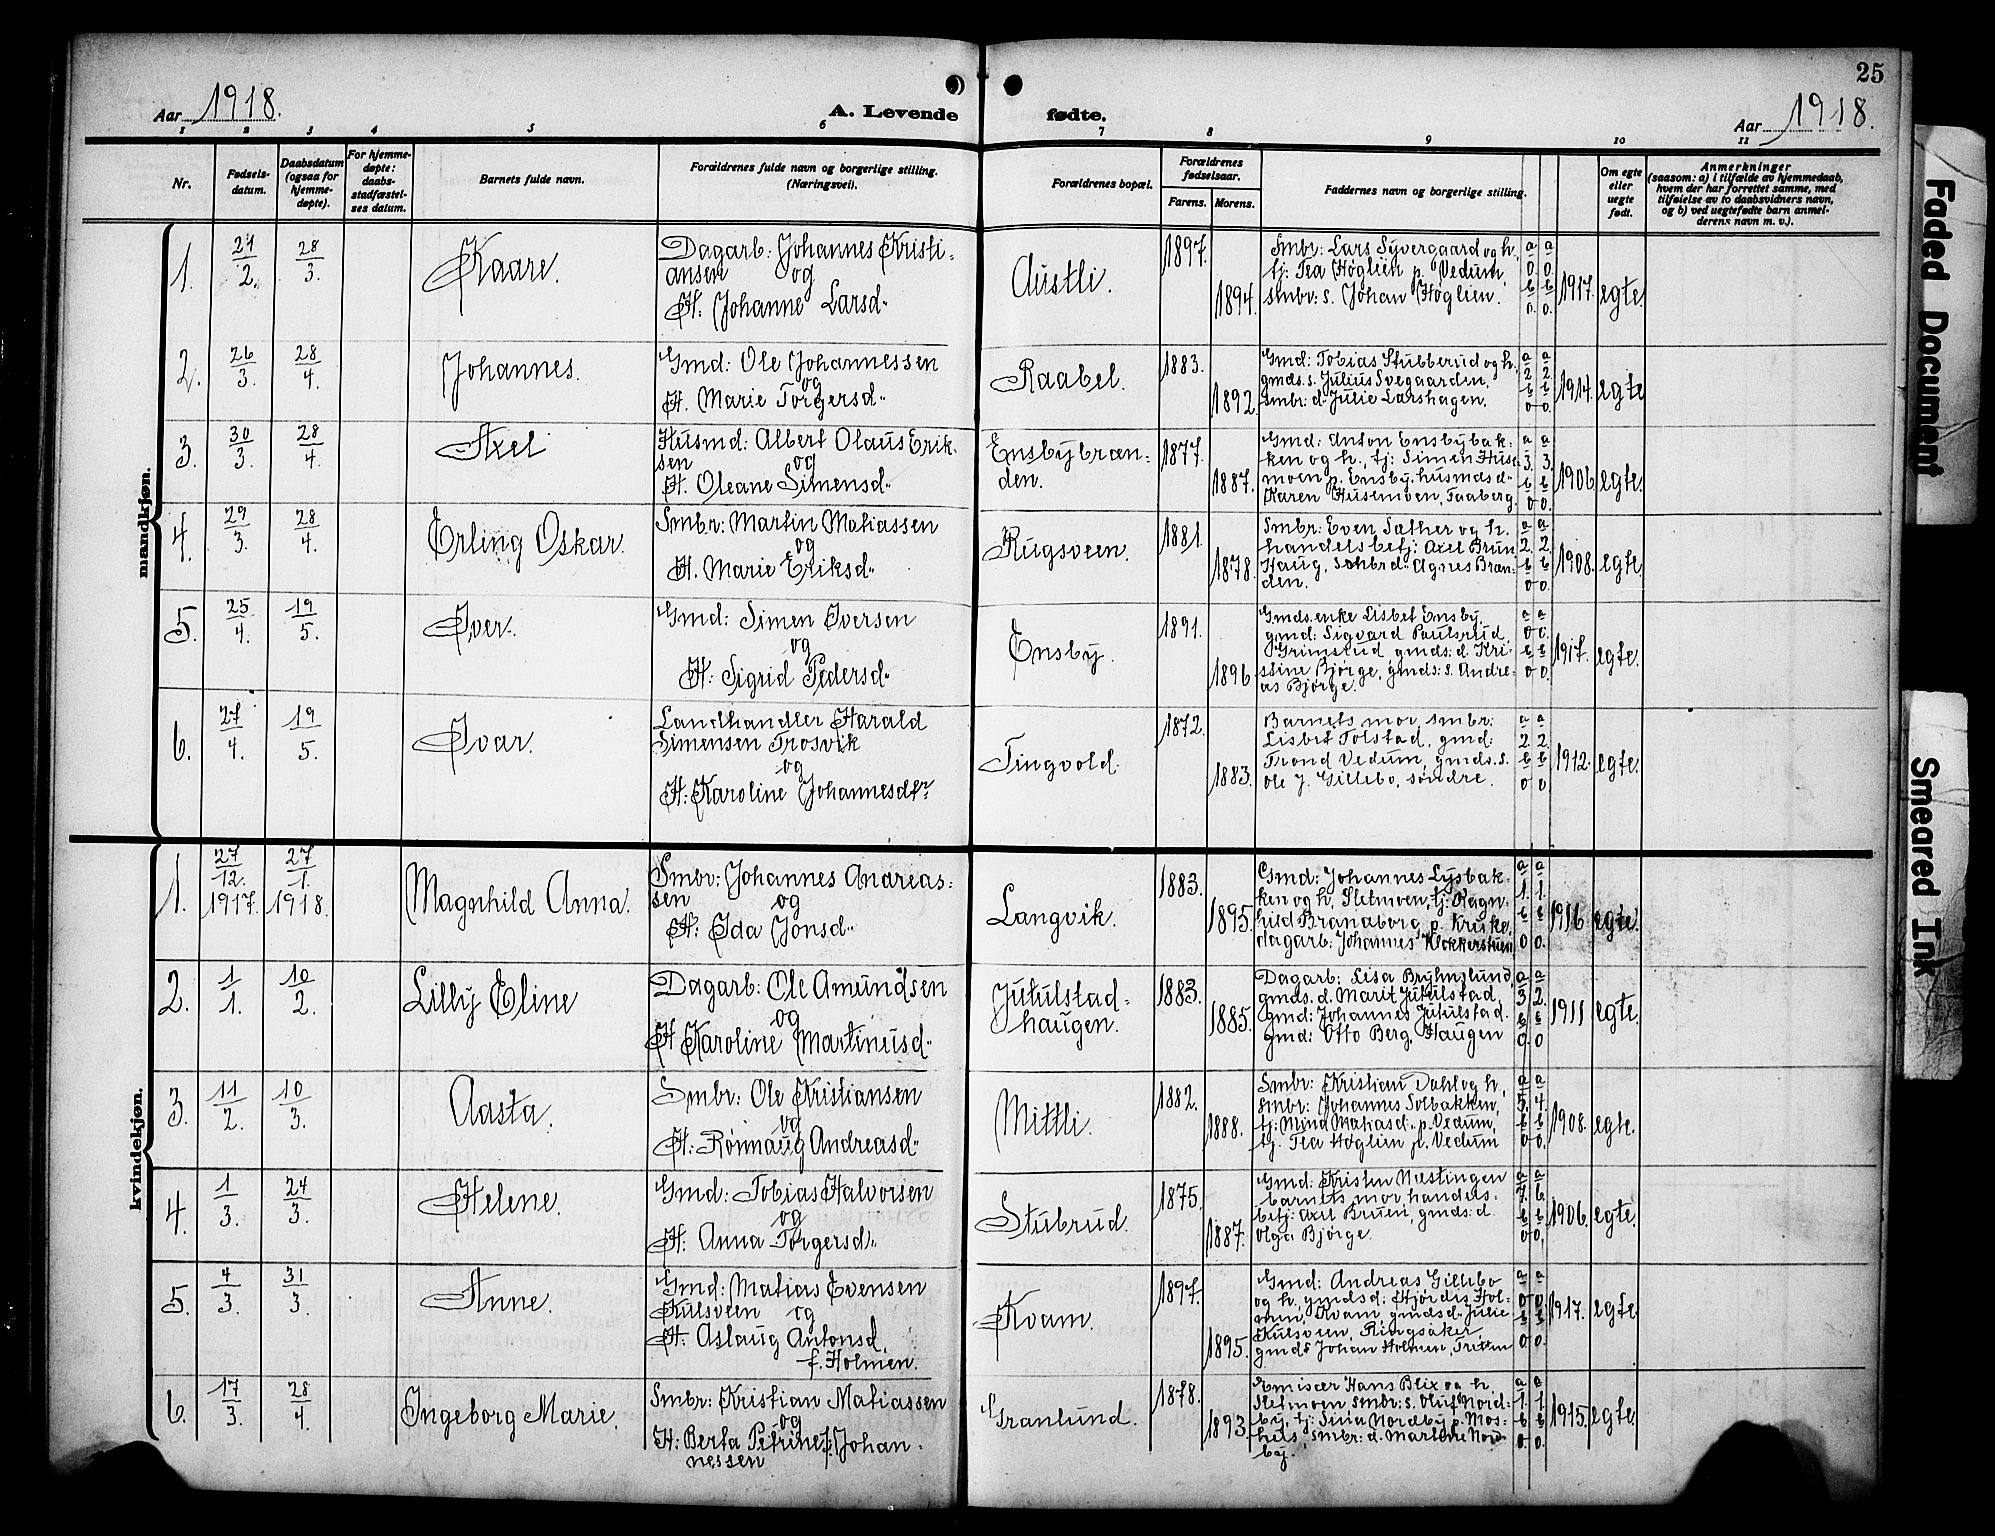 25
Aar 1918.
A. Levende fødte.
Aar 1918.
1 2 3 4 5 6 7 8 9 10 11
Nr.
Fødsels-
datum.
Daabsdatum
(ogsaa for
hjemme-
døpte).
For hjemme-
døpte:
daabs-
stadfæstel-
ses datum.
Barnets fulde navn.
Forældrenes fulde navn og borgerlige stilling.
(Næringsvei).
Forældrenes bopæl.
Forældrenes
fødselsaar.
Farens. Morens.
Faddernes navn og borgerlige stilling.
Om egte
eller
uegte
født.
Anmerkninger
(saasom: a) i tilfælde av hjemmedaab,
hvem der har forrettet samme, med
tilføielse av to daabsvidners navn,
og b) ved uegtefødte barn anmel-
derens navn m. v.).
mandkjøn.
1.
27/2.
28/3.
Kaare.
Dagarb: Johannes Kristi-
ansen og
H. Johanne Larsd"
Austli.
1897.
1894.
Smbr: Lars Syvergaard og h.,
tj: Tea Høglien p. Vedum,
smbr: s. Johan Høglien.
a a
0. 0.
b b
0. 0.
1917.
egte.
2.
26/3.
28/4.
Johannes.
Gmd: Ole Johannessen
og
H. Marie Torgersd"
Raabel.
1883.
1892.
Gmd: Tobias Stubberud og h.,
gmds. s. Julius Svegaarden,
smbr: d" Julie Larshagen.
a a
2 2
b b
0 0.
1914.
egte
3.
30/3.
28/4.
Axel
Husmd: Albert Olaus Erik-
sen og
H. Oleane Simensd"
Ensbybræn-
den.
1877.
1887.
Gmd: Anton Ensbybak-
ken og h., tj: Simen Huse-
moen p. Ensby, husmdsd"
Karen Husemoen, Faaberg.
a a
3. 3.
b b
0 0.
1906.
egte.
4.
29/3.
28/4.
Erling Oskar.
Smbr: Martin Matiassen
og
H. Marie Eriksd"
Rugsveen.
1881.
1878.
Smbr: Even Sæther og h.
handelsbetj: Axel Brun,
Haug, smbrd" Agnes Bræn-
den.
a a
2. 2.
b b
0 0.
1908.
egte.
5.
25/4.
19/5.
Iver.
Gmd: Simen Iversen
og
H: Sigrid Pedersd"
Ensby.
1891.
1896.
Gmds.enke Lisbet Ensby,
gmd: Sigvard Paulsrud,
Grimstud gmds: d. Kri-
stine Bjørge, gmds: s. Andre-
as Bjørge.
a a
0 0.
b b
0 0.
1917.
egte.
6.
27/4.
19/5.
Ivar.
Landhandler Harald
Simensen Trosvik
og
H: Karoline Johannesdtr
Tingvold.
1872.
1883.
Barnets mor, smbr:
Lisbet Tolstad, gmd:
Trond Vedum, gmds. s.
Ole J. Gillebo, søndre.
a a
2. 2.
b b
0 0
1912.
egte.
kvindekjøn.
1.
27/12.
1917.
27/1.
1918.
Magnhild Anna.
Smbr: Johannes Andreas-
sen og
H: Ida Jonsd"
Langvik.
1883.
1895.
Gmd: Johannes Lysbak-
ken og h, Sletmoen, tj: Ragn-
hild Brandborg p. Kruke,
dagarb: Johannes Klokkerstuen
a a
1. 1.
b b
0 0.
1916
egte.
2.
1/1.
10/2.
Lilly Eline
Dagarb: Ole Amundsen
og
H. Karoline Martinusd"
Jutulstad-
haugen.
1883.
1885.
Dagarb: Lisa Bryhnslund,
gmds. d. Marit Jutulstad,
gmd: Johannes Jutulstad.
gmd: Otto Berg, Haugen
a a
3 2.
b b
0. 0.
1911
egte.
3.
11/2.
10/3.
Aasta.
Smbr: Ole Kristiansen
og
H: Rønnaug Andreasd"
Mittli.
1882.
1888.
Smbr: Kristian Dahl og h,
smbr: Johannes Solbakken,
tj: Mina Matiasd" p. Vedum,
tj. Tea Høglien p. Vedum
a a
5. 4.
b b
0 0.
1908.
egte.
4.
1/3.
24/3.
Helene.
Gmd: Tobias Halvorsen
og
H. Anna Torgersd"
Stubrud.
1875.
1887.
Gmd: Kristen Mæstingen
barnets mor, handels-
betj: Axel Bruen, gmds: d.
Olga Bjørge.
a a
7. 6.
b b
0 0.
1906.
egte.
5.
4/3.
31/3.
Anne.
Gmd: Matias Evensen
Kulsveen og
H. Aslaug Antonsd.
f. Holmen.
Kvam
1897.
1895.
Gmd: Andreas Gillebo
og h., gmdsd: Hjørdis Hol-
men, Kvam, gmdsd" Julie
Kulsveen, Ringsaker,
gmds Johan Holmen,
a a
0 0
b b
0 0.
1917.
egte.
6.
17/3.
28/4.
Ingeborg Marie.
Smbr: Kristian Matiassen
og
H: Berta Petrine f. Johan-
nessen
Granlund.
1878.
1893.
Emisær Hans Blix og h.
Sletmoen smbr: s. Oluf Nord-
by, tj: Nordby p. Mos-
hus, smbr: d. Martine Nord-
by.
a a
1. 1.
b b
0. 0.
1915.
egte.
Faded Document
Smeared Ink